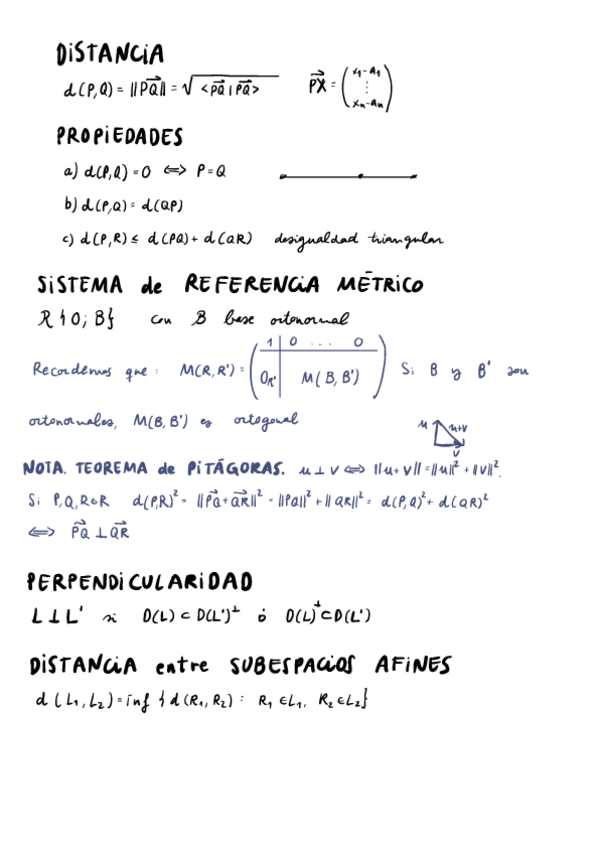 DISTANCIA
d(P,Q) = ||PQ⃗|| = √<PQ⃗|PQ⃗> PX⃗ = (x₁-a₁ ⋮ xₙ-aₙ)
PROPIEDADES
a) d(P,Q) = 0 ⟺ P = Q
b) d(P,Q) = d(QP)
c) d(P,R) ≤ d(PQ) + d(QR) desigualdad triangular
SISTEMA de REFERENCIA MÉTRICO
R {O; B} con B base ortonormal
Recordemos que: M(R,R') = (1 | 0 ... 0 / O_R' | M(B,B')) Si B y B' son
ortonormales, M(B,B') es ortogonal
u u+v v
NOTA. TEOREMA de PITÁGORAS. u ⊥ v ⟺ ||u+v||² = ||u||² + ||v||².
Si P,Q,R∈R d(P,R)² = ||PQ⃗+QR⃗||² = ||PQ||² + ||QR||² = d(P,Q)² + d(QR)²
⟺ PQ⃗ ⊥ QR⃗
PERPENDICULARIDAD
L ⊥ L' si D(L) ⊂ D(L')^⊥ ó D(L)^⊥ ⊂ D(L')
DISTANCIA entre SUBESPACIOS AFINES
d(L₁,L₂) = inf {d(R₁,R₂) : R₁ ∈ L₁, R₂ ∈ L₂}